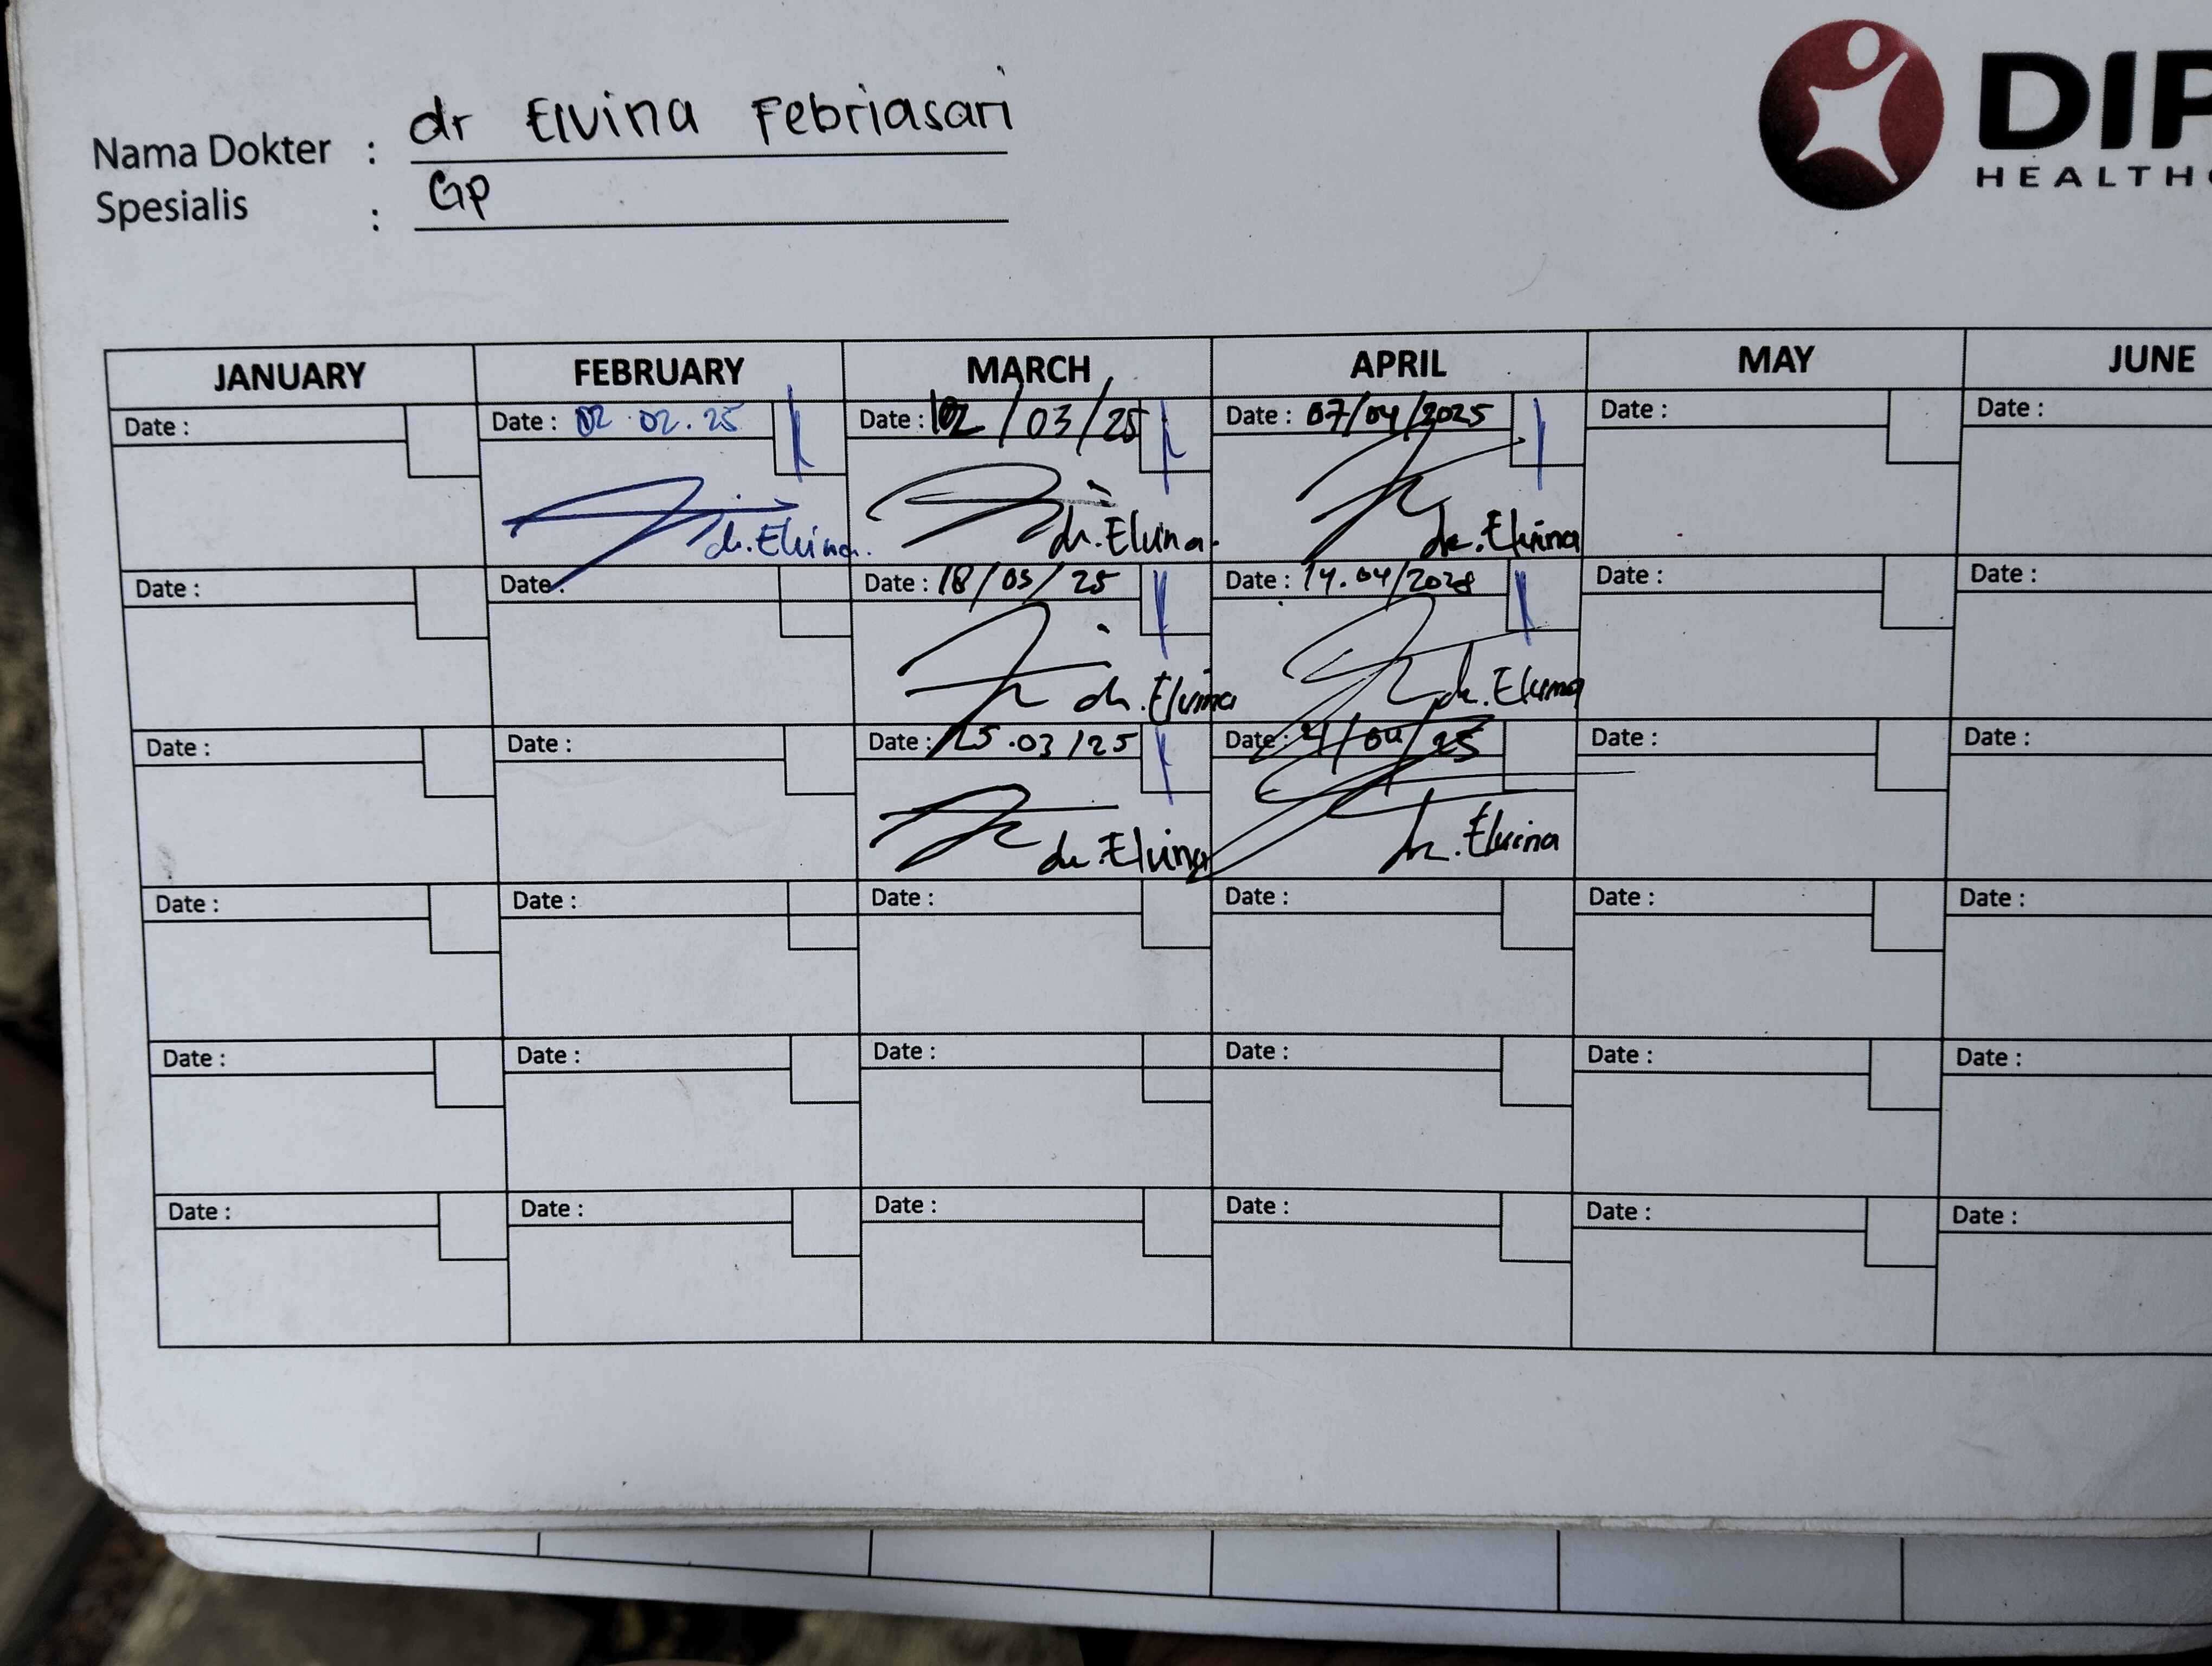 dr Elvina Febriasari
Nama Dokter :
Spesialis : GP
DIP
HEALTH
JANUARY FEBRUARY MARCH APRIL MAY JUNE
Date : Date : 02.02.25 Date : 02/03/25 Date : 07/04/2025 Date : Date :
dr.Elvina dr.Elvina dr.Elvina
Date : Date : Date : 18/03/25 Date : 14.04/2025 Date : Date :
dr.Elvina dr.Elvina
Date : Date : Date : 25.03/25 Date : 21/04/25 Date : Date :
dr.Elvina dr.Elvina
Date : Date : Date : Date : Date : Date :
Date : Date : Date : Date : Date : Date :
Date : Date : Date : Date : Date : Date :